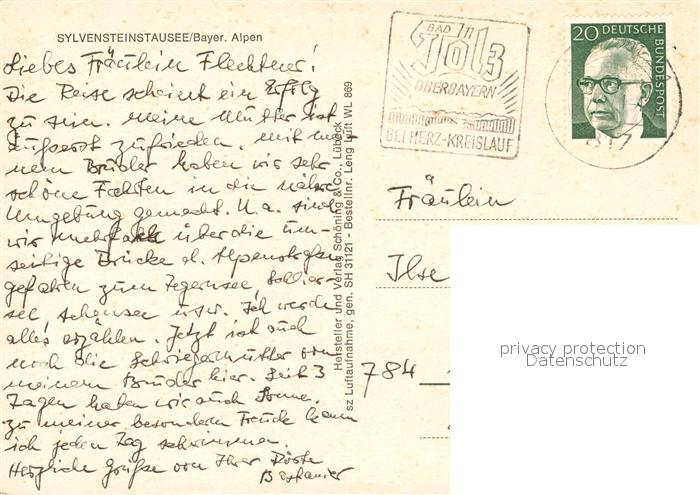 SYLVENSTEINSTAUSEE/Bayer. Alpen
Liebes Fräulein Flechtner!
Die Reise scheint ein Erfolg
zu sein. Meine Mutter ist
äußerst zufrieden. Mit mei
nem Bruder haben wir sehr
schöne Fahrten in die nähere
Umgebung gemacht. U. a. sind
wir mehrfach über die um-
seitige Brücke d. Alpenstraße
gefahren zum Tegernsee, Schlier-
see, usw. Ich werde
alles erzählen. Jetzt ist auch
noch die Schwiegermutter von
meinem Bruder hier. Seit 3
Tagen haben wir auch Sonne.
Zu meiner besonderen Freude kann
ich jeden Tag schwimmen.
Herzliche Grüße von Ihrer Dörte
Hersteller und Verlag Schöning & Co., Lübeck
sz Luftaufnahme, gen. SH 31121 - Bestellnr. Leng WL 869
BAD
Tölz
OBERBAYERN
BEI HERZ-KREISLAUF
20 DEUTSCHE
BUNDESPOST
817
Fräulein
Ilse
784
privacy protection
Datenschutz